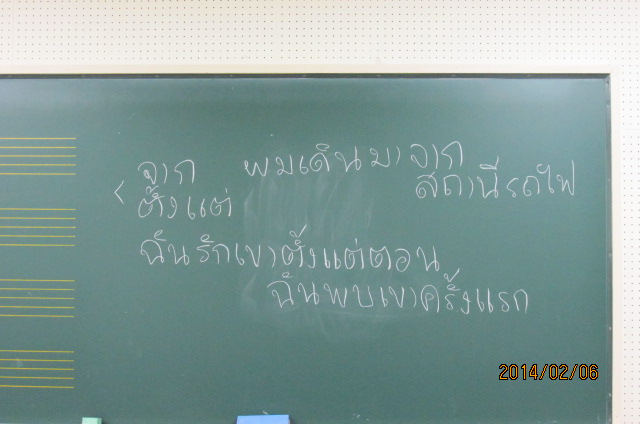 จาก ผมเดินมาจาก
ตั้งแต่ สถานีรถไฟ
ฉันรักเขาตั้งแต่ตอน
ฉันพบเขาครั้งแรก
2014/02/06